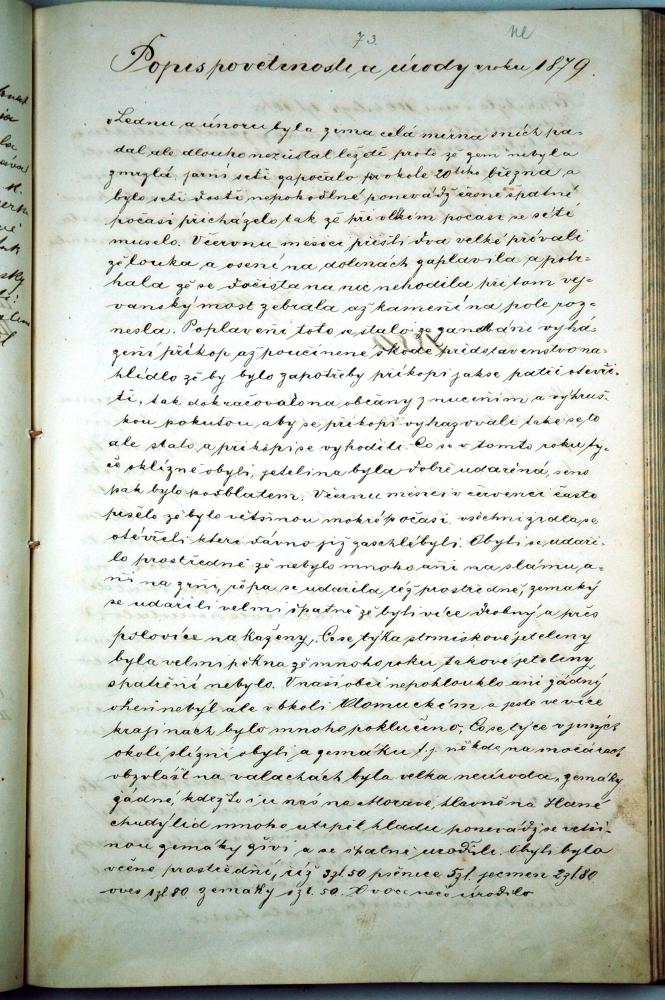 73.
ne
Popis povětrnosti a úrody v roku 1879.
v Lednu a únoru byla zima celá mírna sních pa=
dal ale dlouho nezůstal ležeti proto zě zem nebyla
zmrzlá, jarní setí započalo se okolo 20tého března, a
bylo setí dosti nepohodlné ponevádž časné špatné
počasí přicházelo tak zě při vlhkim počasí se séti
muselo. V červnu měsíci přišli dva velké prívali
zě louka a osení na dolinách zaplavila a potr=
hala zě se dočista na nic nehodila při tom vej=
vanský most zebrala až kamení na pole roz=
nesla. Poplavení toto se stalo ze zandání vyhá=
zení příkop až po učinené škodě přidstavenstvo na=
hlídlo zě by bylo zapotřeby příkopi jak se patří otevří=
ti, tak dokračovalo na občany z nucením a vyhruž=
kou pokutou, aby se příkopi vyhazovali take se to
ale stalo, a příkopi se vyhodili. Co se v tomto roku tý=
če sklizně obylí, jetelina byla dobře udařená, seno
pak bylo pod blatem. V černu měsíci v červenci často
pršelo zě bylo většinou mokré počasí, všechni zrdla se
otěvřeli které dávno již zaschlé byli. Obylí se udaři=
lo prostředně zě nebylo mnoho ani na slámu, a=
ni na zrní, řepa se udařila též prostředně, zemáky
se udařili velmi špatně zě byli více drobný a přes
polovice nakaženy. Co se týka strniskové jeteliny
byla velmi pěkna zě mnoho roku takové jeteliny
spatření nebylo. V naší obci nepohlouklo ani žádný
oheň nebyl ale v okolí Olomuckém a jestě ve více
krajinách bylo mnoho poklučeno, Co se týče v jiných
okolí slizní obylí a zemáku t.j. někde na močárach
obzvlášť na valachách byla velka neúroda, zemáky
žádné, kdežto i u nás na Moravě, hlavně na Hané
chudý lid mnoho utrpěl hladu ponevádž se vetši=
nou zemáky živí a se špatně urodili. Obylí bylo
v ceně prostřední, rýž 3zl 50 pšenice 5zl. ječmen 2zl 80
oves 1zl 80 zemáky 1zl. 50. Ovoce neco urodilo